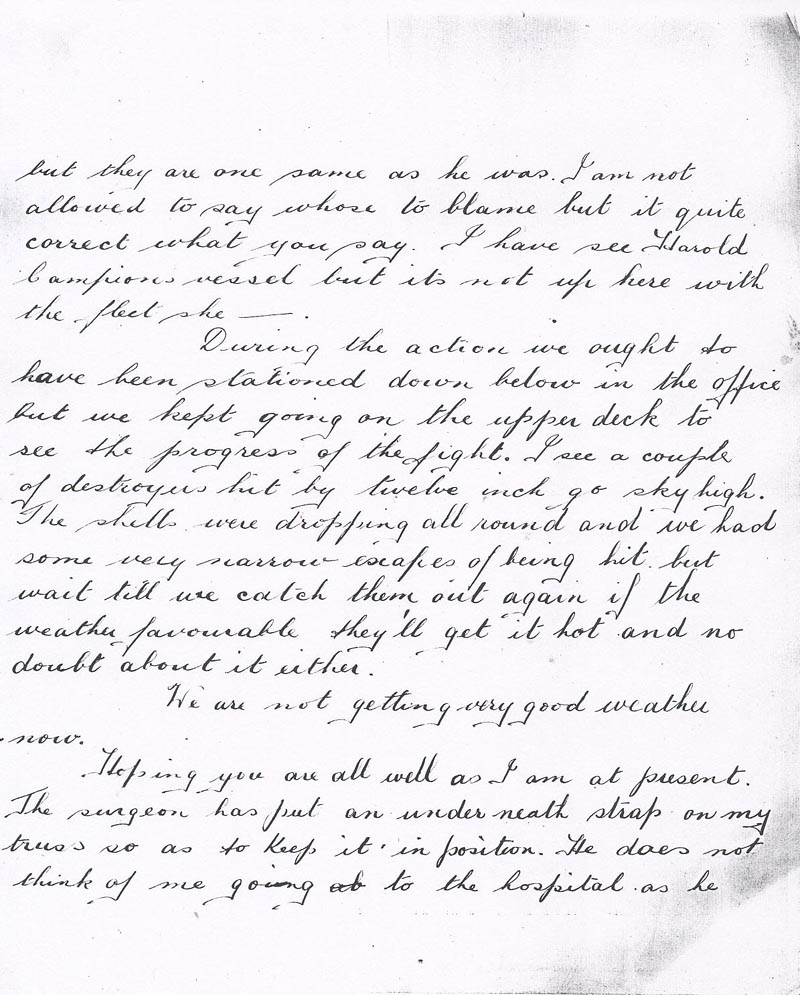 but they are one same as he was. I am not
allowed to say whose to blame but it quite
correct what you say. I have see Harold
Campions vessel but its not up here with
the fleet she — .
During the action we ought to
have been stationed down below in the office
but we kept going on the upper deck to
see the progress of the fight. I see a couple
of destroyers hit by twelve inch go sky high.
The shells were dropping all round and we had
some very narrow escapes of being hit. but
wait till we catch them out again if the
weather favourable they'll get it hot and no
doubt about it either.
We are not getting very good weather
now.
Hoping you are all well as I am at present.
The surgeon has put an under neath strap on my
truss so as to keep it in position. He does not
think of me going at to the hospital as he